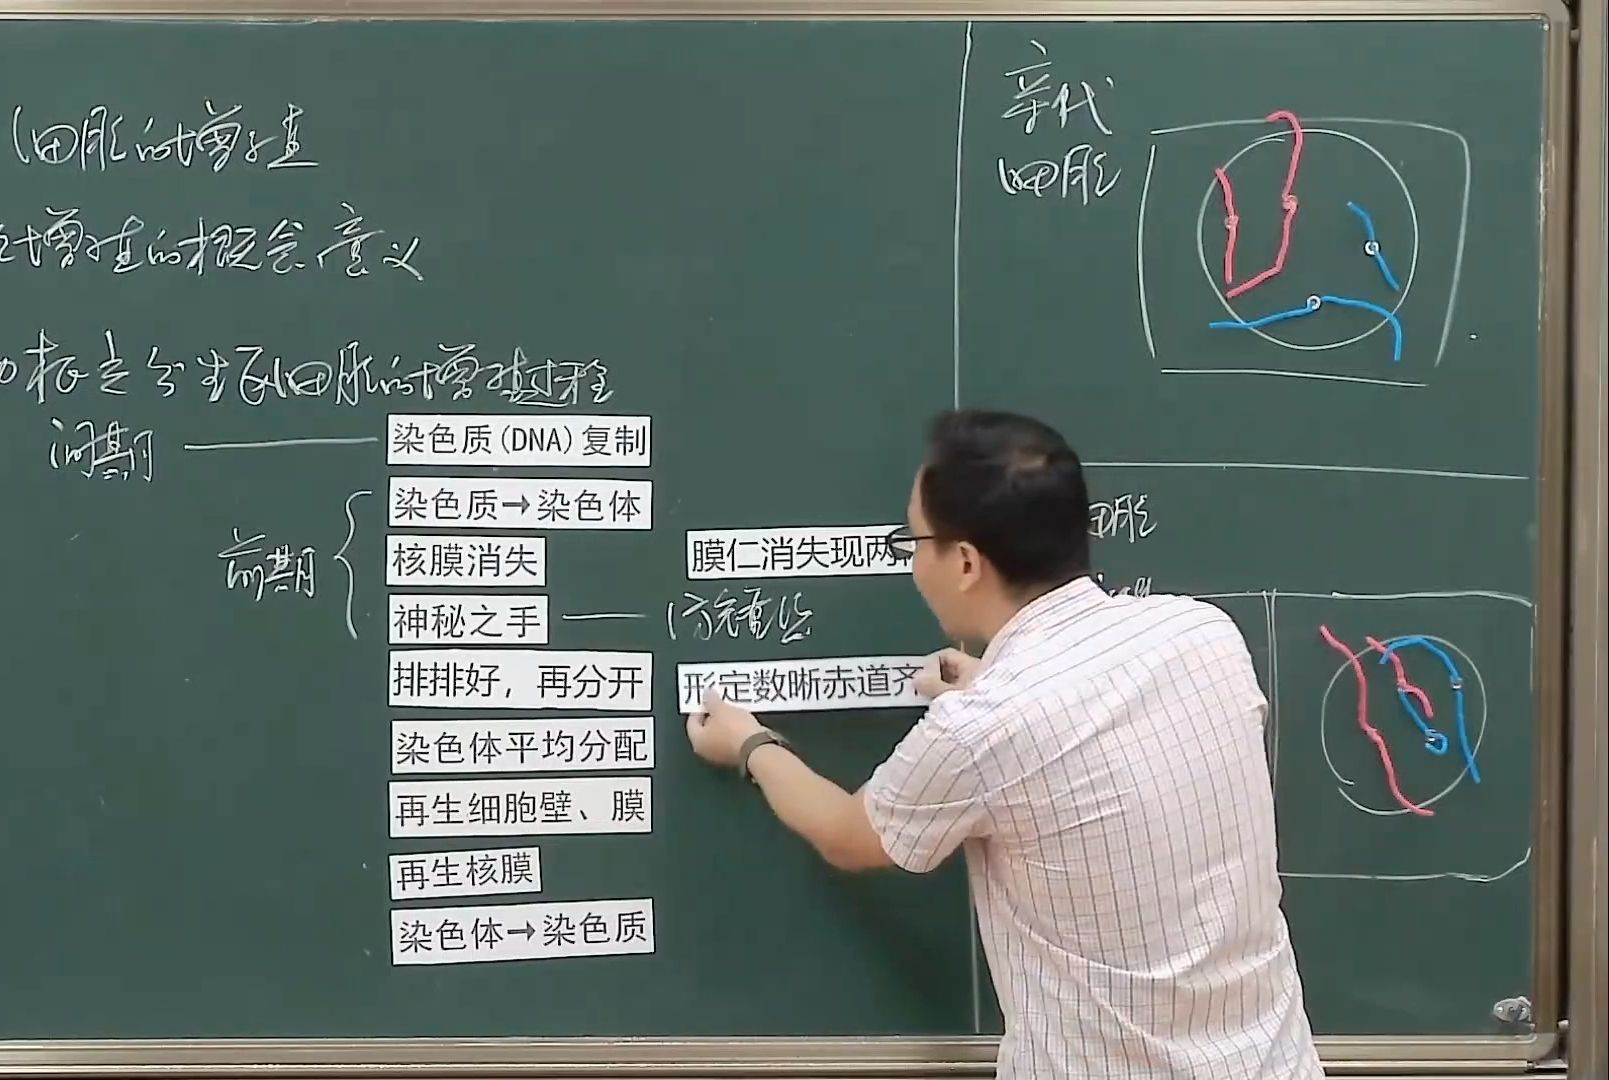 细胞的增殖
增殖的概念意义
根尖分生区细胞的增殖过程
间期
染色质(DNA)复制
前期
染色质→染色体
核膜消失
膜仁消失现两
神秘之手
排排好，再分开
形定数晰赤道齐
染色体平均分配
再生细胞壁、膜
再生核膜
染色体→染色质
亲代
细胞
胞